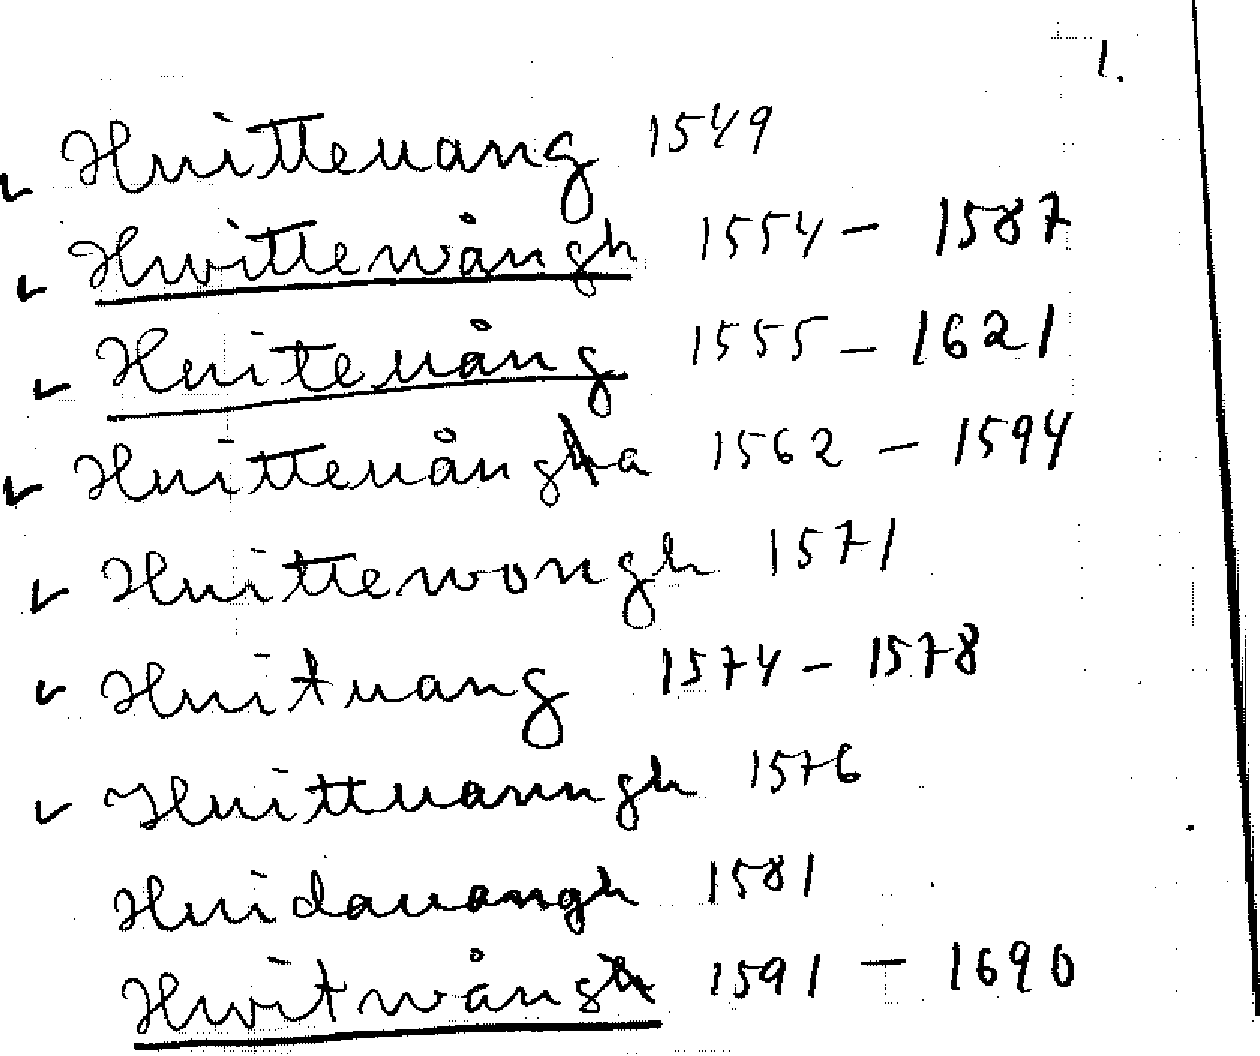 1.
Huitteuang 1549
Hwittewångh 1554 - 1587
Huiteuång 1555 - 1621
Huitteuånga 1562 - 1594
Huittewongh 1571
Huituang 1574 - 1578
Huittuanngh 1576
Huidauangh 1581
Hwitwång 1591 - 1690